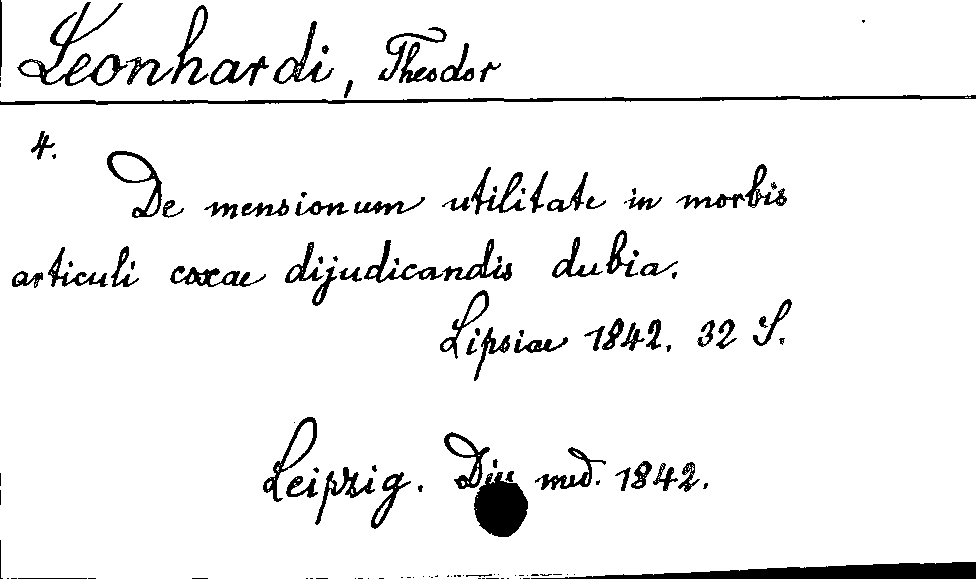 Leonhardi, Theodor
4.
De mensionum utilitate in morbis
articuli coxae dijudicandis dubia.
Lipsiae 1842. 32 S.
Leipzig. med. 1842.